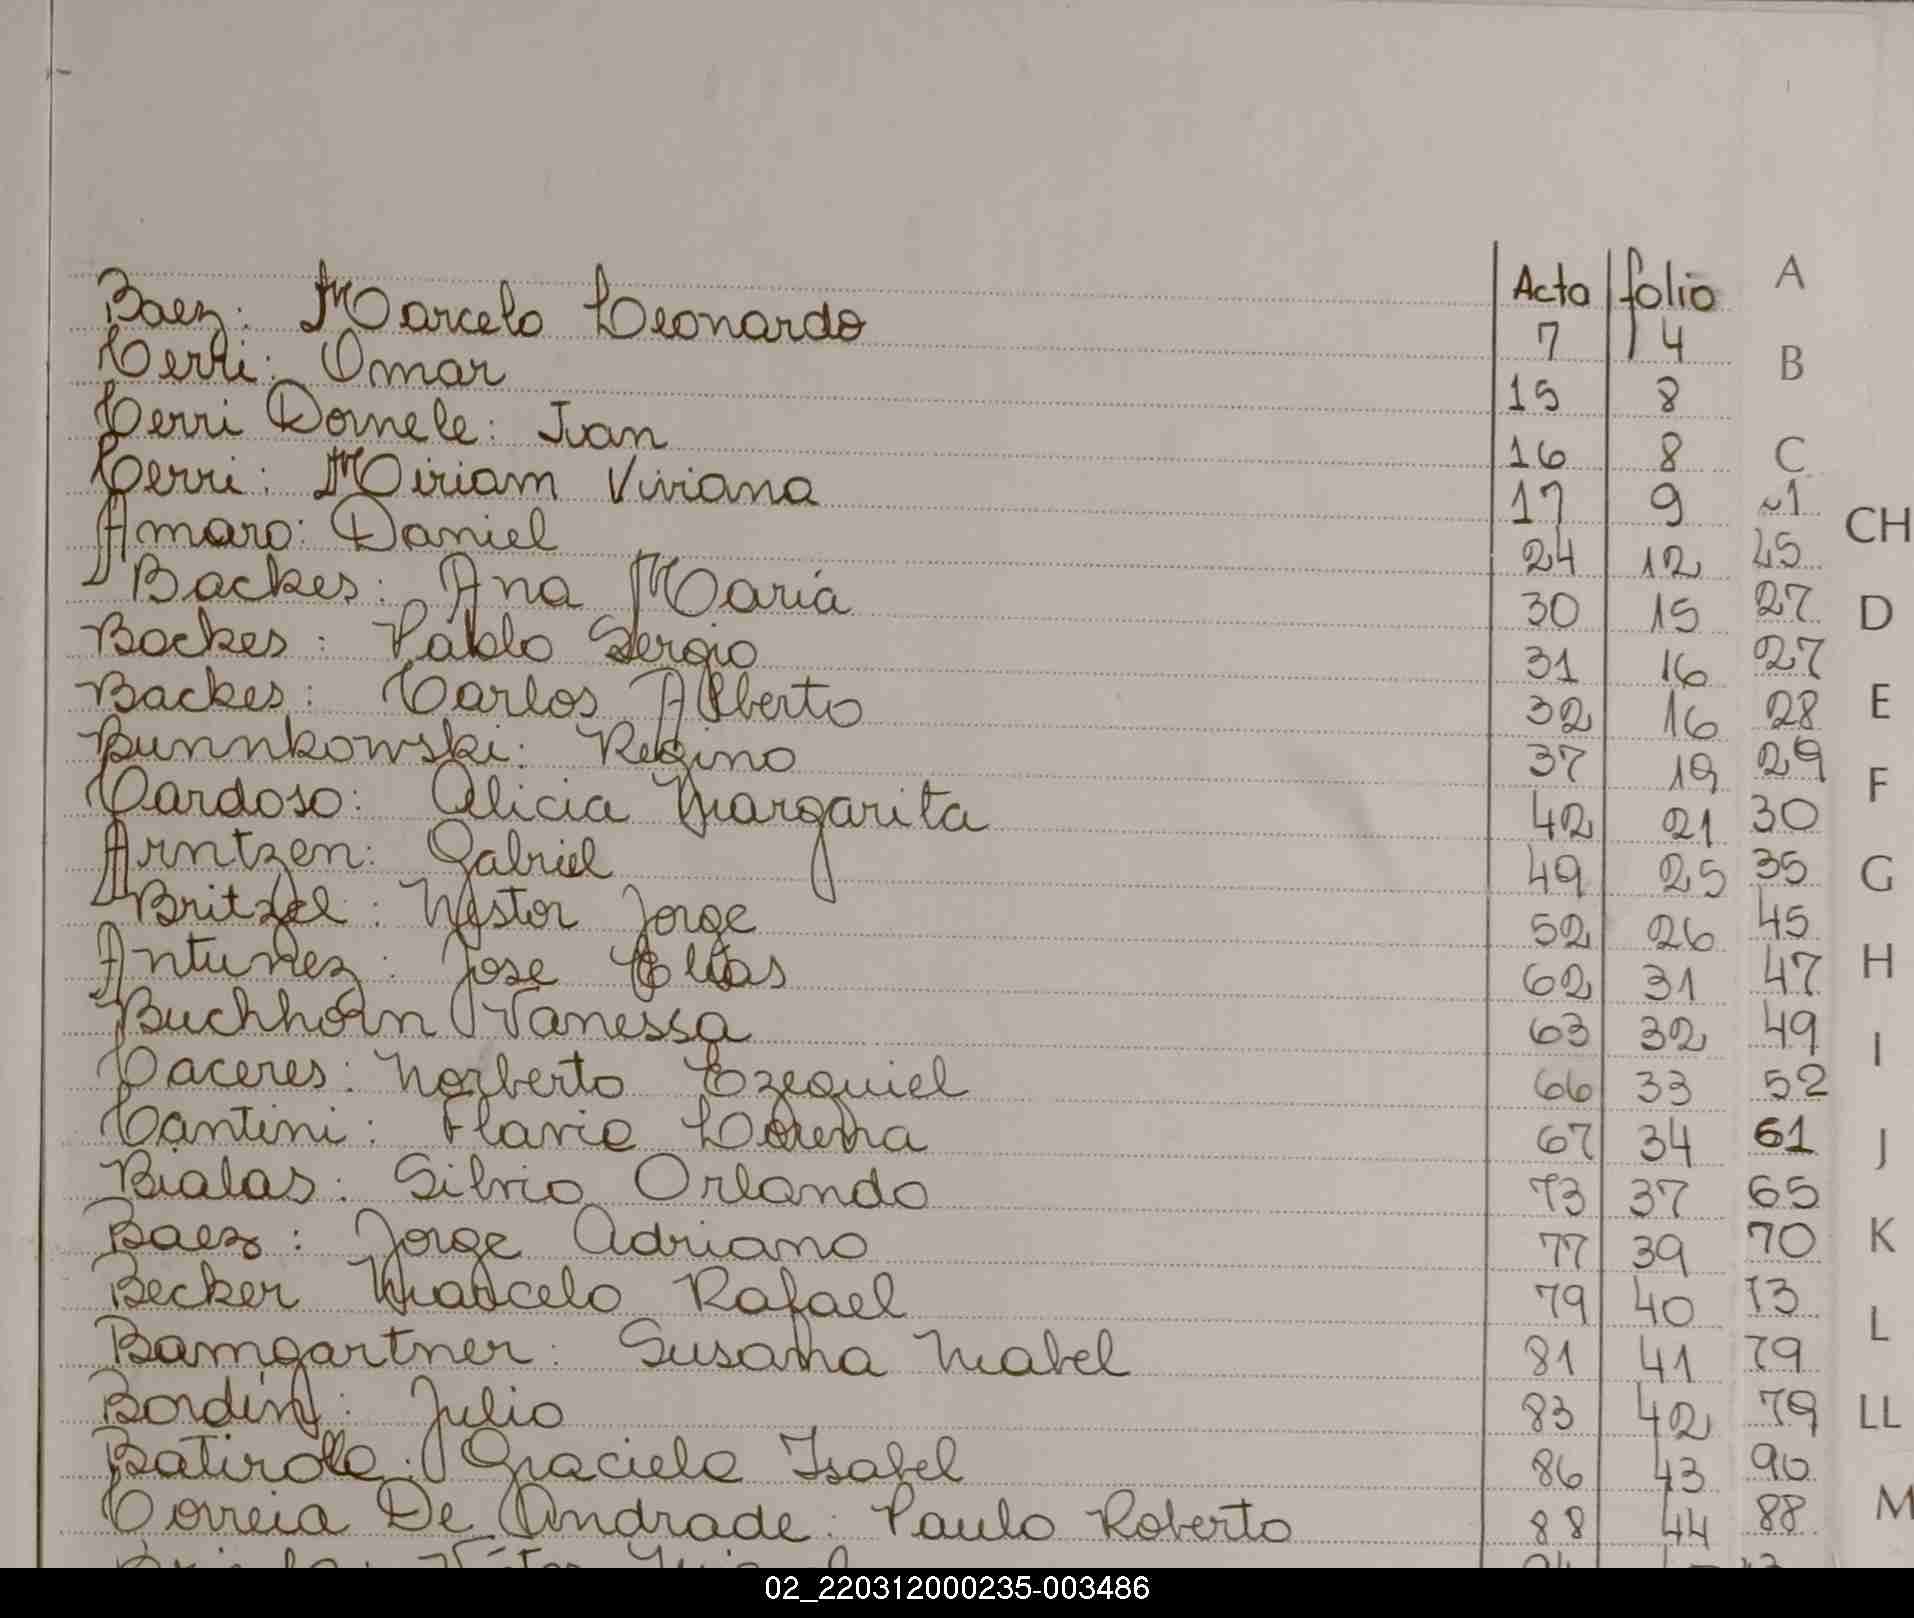 Acta folio A
Baez: Marcelo Leonardo 7 4
Cerri: Omar 15 8 B
Cerri Dornele: Ivan 16 8 C
Cerri: Miriam Viviana 17 9 ~1 CH
Amaro: Daniel 24 12 45
Backes: Ana Maria 30 15 27 D
Backes: Pablo Sergio 31 16 27
Backes: Carlos Alberto 32 16 28 E
Bunnkowski: Regino 37 19 29
Cardoso: Alicia Margarita 42 21 30 F
Arntzen: Gabriel 49 25 35 G
Britzel: Nestor Jorge 52 26 45
Antunez: Jose Elias 62 31 47 H
Buchhorn Vanessa 63 32 49
Caceres: Norberto Ezequiel 66 33 52 I
Cantini: Flavia Lorena 67 34 61 J
Bialas: Silvio Orlando 73 37 65
Baez: Jorge Adriano 77 39 70 K
Becker Marcelo Rafael 79 40 73
Bamgartner: Susana Mabel 81 41 79 L
Bordin: Julio 83 42 79 LL
Batirolla: Graciela Isabel 86 43 90
Correia De Andrade: Paulo Roberto 88 44 88 M
02_220312000235-003486